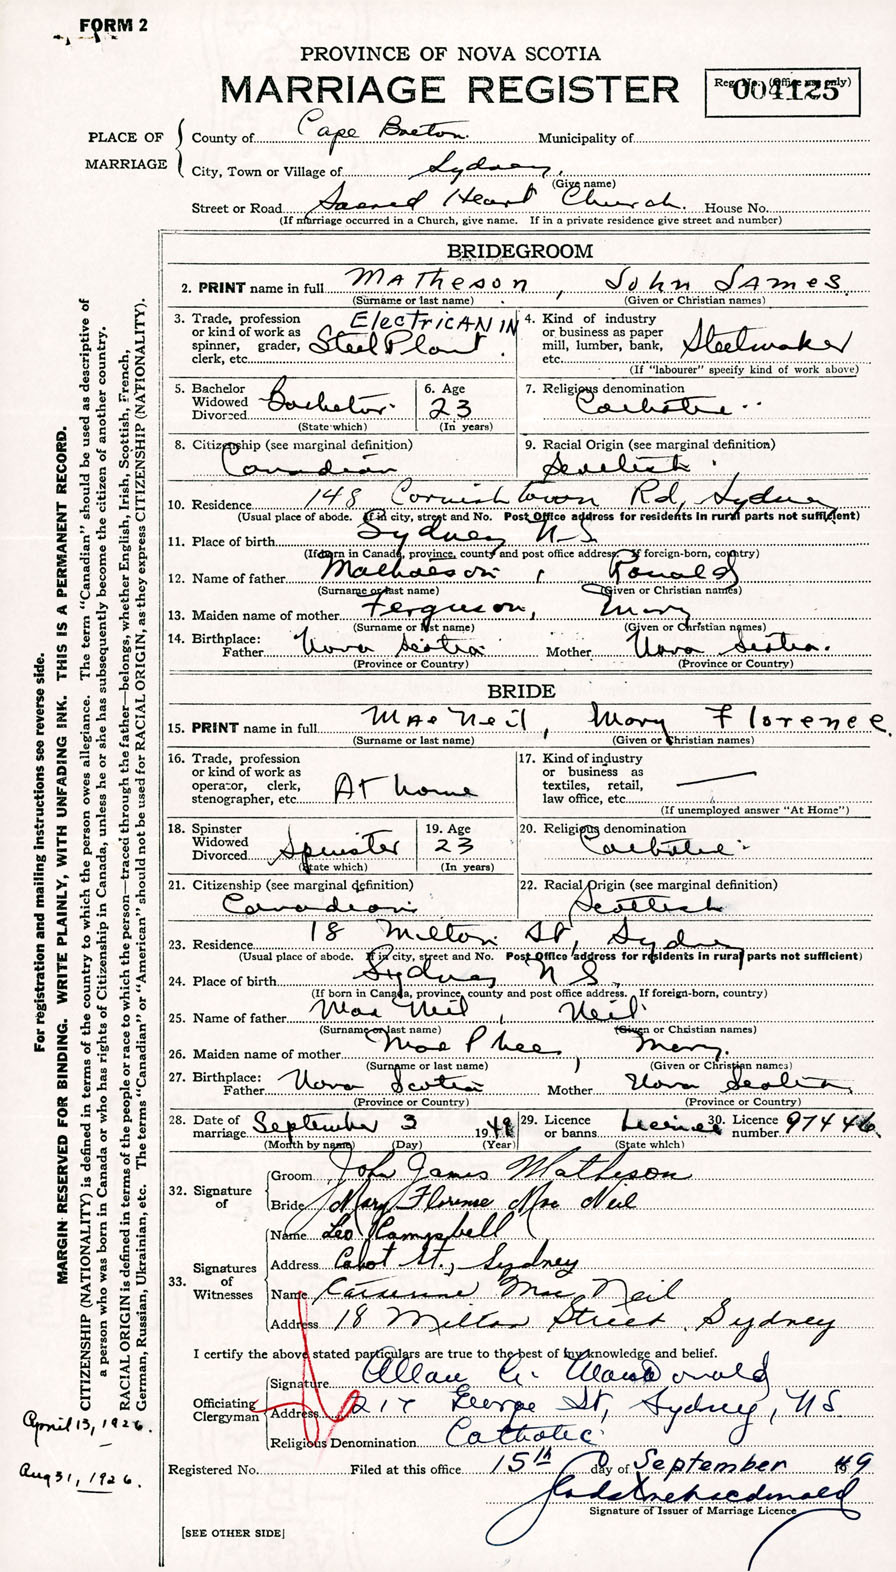 FORM 2
PROVINCE OF NOVA SCOTIA
MARRIAGE REGISTER
Reg. No. (Office use only)
004125
PLACE OF MARRIAGE
County of Cape Breton Municipality of
City, Town or Village of Sydney,
(Give name)
Street or Road Sacred Heart Church. House No.
(If marriage occurred in a Church, give name. If in a private residence give street and number)
BRIDEGROOM
2. PRINT name in full Matheson, John James.
(Surname or last name) (Given or Christian names)
3. Trade, profession or kind of work as spinner, grader, clerk, etc. ElectricAN IN Steel Plant.
4. Kind of industry or business as paper mill, lumber, bank, etc. Steelmaker
(If "labourer" specify kind of work above)
5. Bachelor Widowed Divorced Bachelor.
(State which)
6. Age 23
(In years)
7. Religious denomination Catholic.
8. Citizenship (see marginal definition) Canadian
9. Racial Origin (see marginal definition)
10. Residence 148 Cornishtown Rd, Sydney
(Usual place of abode. If in city, street and No. Post Office address for residents in rural parts not sufficient)
11. Place of birth Sydney N-S.
(If born in Canada, province, county and post office address. If foreign-born, country)
12. Name of father Matheson, Ronald
(Surname or last name) (Given or Christian names)
13. Maiden name of mother Ferguson, Mary
(Surname or last name) (Given or Christian names)
14. Birthplace: Father Nova Scotia Mother Nova Scotia.
(Province or Country) (Province or Country)
BRIDE
15. PRINT name in full Mac Neil, Mary Florence.
(Surname or last name) (Given or Christian names)
16. Trade, profession or kind of work as operator, clerk, stenographer, etc. At home
17. Kind of industry or business as textiles, retail, law office, etc. —
(If unemployed answer "At Home")
18. Spinster Widowed Divorced Spinster
(State which)
19. Age 23
(In years)
20. Religious denomination Catholic.
21. Citizenship (see marginal definition) Canadian
22. Racial Origin (see marginal definition) Scottish
23. Residence 18 Milton St, Sydney
(Usual place of abode. If in city, street and No. Post Office address for residents in rural parts not sufficient)
24. Place of birth Sydney N S.
(If born in Canada, province, county and post office address. If foreign-born, country)
25. Name of father Mac Neil, Neil
(Surname or last name) (Given or Christian names)
26. Maiden name of mother Mac Phee, Mary.
(Surname or last name) (Given or Christian names)
27. Birthplace: Father Nova Scotia Mother Nova Scotia
(Province or Country) (Province or Country)
28. Date of marriage September 3 1949
(Month by name) (Day) (Year)
29. Licence or banns Licence
(State which)
30. Licence number 97446.
32. Signature of
Groom John James Matheson
Bride Mary Florence Mac Neil
33. Signatures of Witnesses
Name Leo Campbell
Address Cabot St., Sydney
Name Catherine Mac Neil
Address 18 Milton Street, Sydney
I certify the above stated particulars are true to the best of my knowledge and belief.
Officiating Clergyman
Signature Allan G. MacDonald
Address George St, Sydney, N.S.
Religious Denomination Catholic
Registered No. Filed at this office 15th day of September 1949
Signature of Issuer of Marriage Licence
[SEE OTHER SIDE]
For registration and mailing instructions see reverse side.
MARGIN RESERVED FOR BINDING. WRITE PLAINLY, WITH UNFADING INK. THIS IS A PERMANENT RECORD.
CITIZENSHIP (NATIONALITY) is defined in terms of the country to which the person owes allegiance. The term "Canadian" should be used as descriptive of
a person who was born in Canada or who has rights of Citizenship in Canada, unless he or she has subsequently become the citizen of another country.
RACIAL ORIGIN is defined in terms of the people or race to which the person—traced through the father—belongs, whether English, Irish, Scottish, French,
German, Russian, Ukrainian, etc. The terms "Canadian" or "American" should not be used for RACIAL ORIGIN, as they express CITIZENSHIP (NATIONALITY).
April 13, 1926.
Aug 31, 1926.